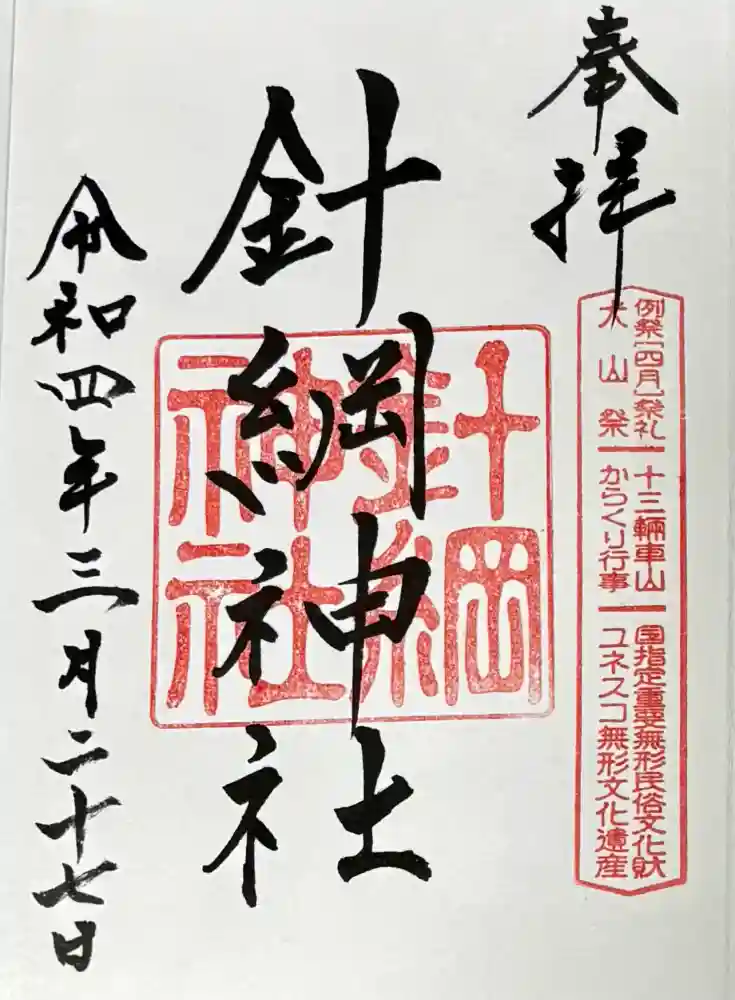 奉拝
例祭(四月)祭礼
犬山祭
十三輛車山
からくり行事
国指定重要無形民俗文化財
ユネスコ無形文化遺産
針綱神社
針綱
神社
令和四年三月二十七日